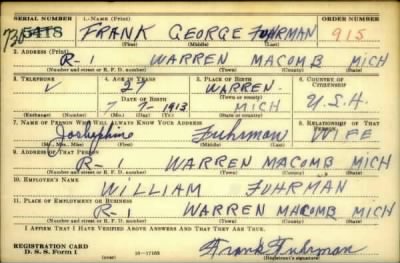 SERIAL NUMBER 1. NAME (Print) ORDER NUMBER
730 5418 FRANK GEORGE FUHRMAN 915
(First) (Middle) (Last)
2. ADDRESS (Print)
R-1 WARREN MACOMB MICH
(Number and street or R. F. D. number) (Town) (County) (State)
3. TELEPHONE 4. AGE IN YEARS 5. PLACE OF BIRTH 6. COUNTRY OF CITIZENSHIP
27 WARREN
DATE OF BIRTH (Town or county)
7-1913 MICH U.S.A.
(Mo.) (Day) (Yr.) (State or country)
7. NAME OF PERSON WHO WILL ALWAYS KNOW YOUR ADDRESS 8. RELATIONSHIP OF THAT PERSON
Josephine Fuhrman WIFE
(Mr., Mrs., Miss) (First) (Middle) (Last)
9. ADDRESS OF THAT PERSON
R-1 WARREN MACOMB MICH
(Number and street or R. F. D. number) (Town) (County) (State)
10. EMPLOYER'S NAME
WILLIAM FUHRMAN
11. PLACE OF EMPLOYMENT OR BUSINESS
R-1 WARREN MACOMB MICH
(Number and street or R. F. D. number) (Town) (County) (State)
I AFFIRM THAT I HAVE VERIFIED ABOVE ANSWERS AND THAT THEY ARE TRUE.
REGISTRATION CARD
D. S. S. Form 1 16-17105 Frank Fuhrman
(Registrant's signature)